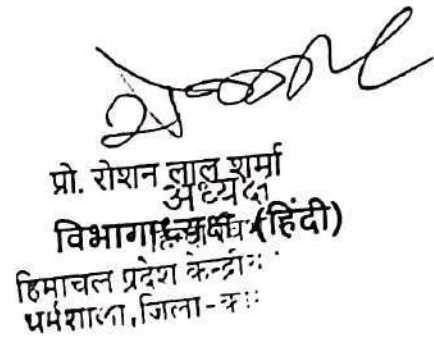 प्रो. रोशन लाल शर्मा
अध्यक्ष
विभागाध्यक्ष (हिंदी)
हिमाचल प्रदेश
धर्मशाला, जिला -